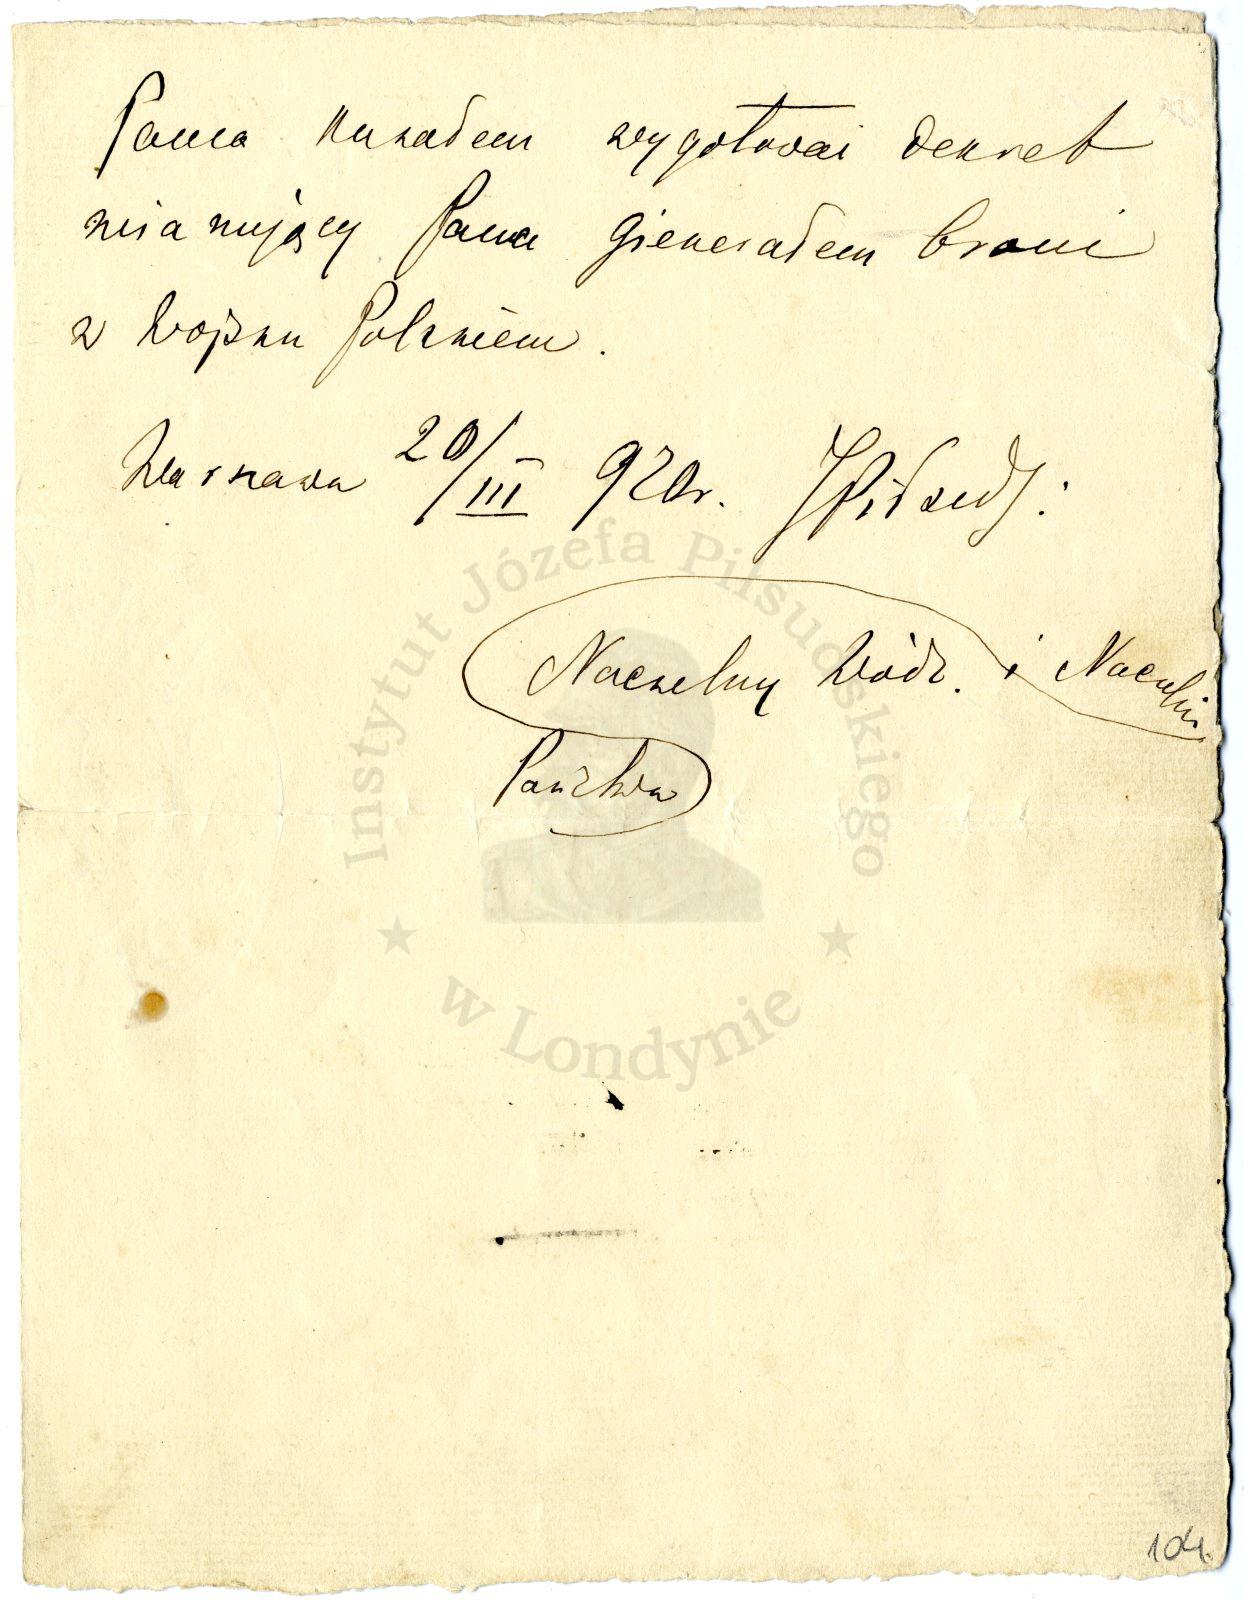 Pana kazałem wygotować dekret
mianujący Pana Gienerałem broni
w Wojsku Polskiem.
Warszawa 20/III 920r. JPiłsuds:
Naczelny Wódz. i Naczelnik
Państwa
Instytut Józefa Piłsudskiego
w Londynie
104.